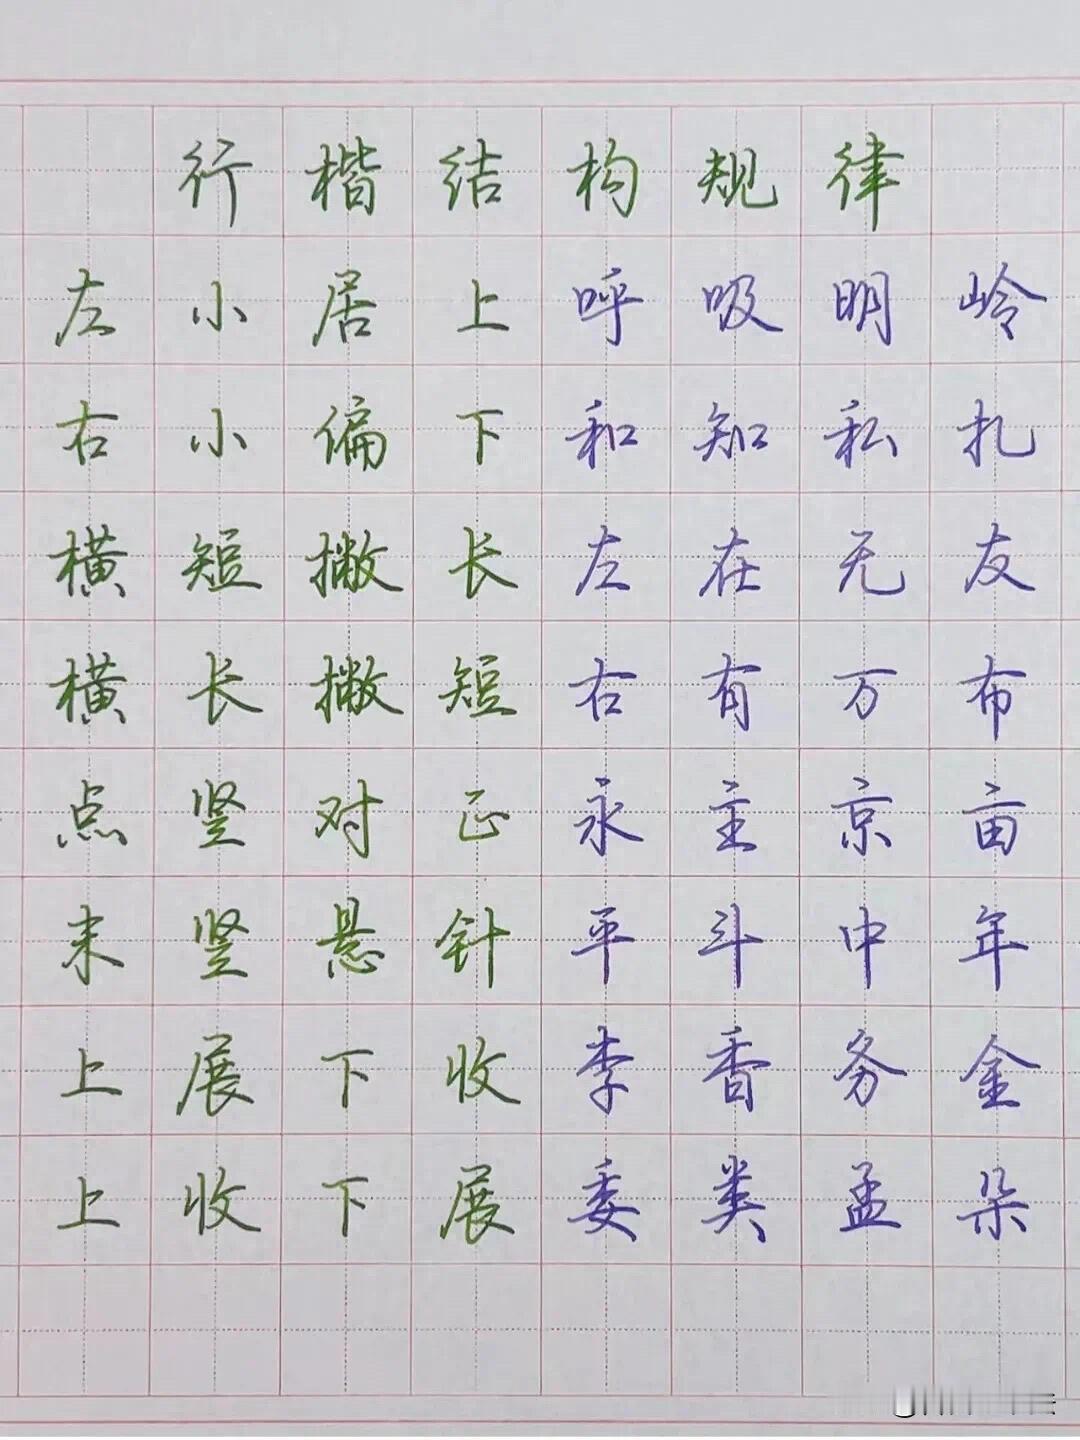 行楷结构规律
左小居上呼吸明岭
右小偏下和知私扎
横短撇长左在无友
横长撇短右有万布
点竖对正永主京亩
末竖悬针平斗中年
上展下收李香务金
上收下展委类孟朵